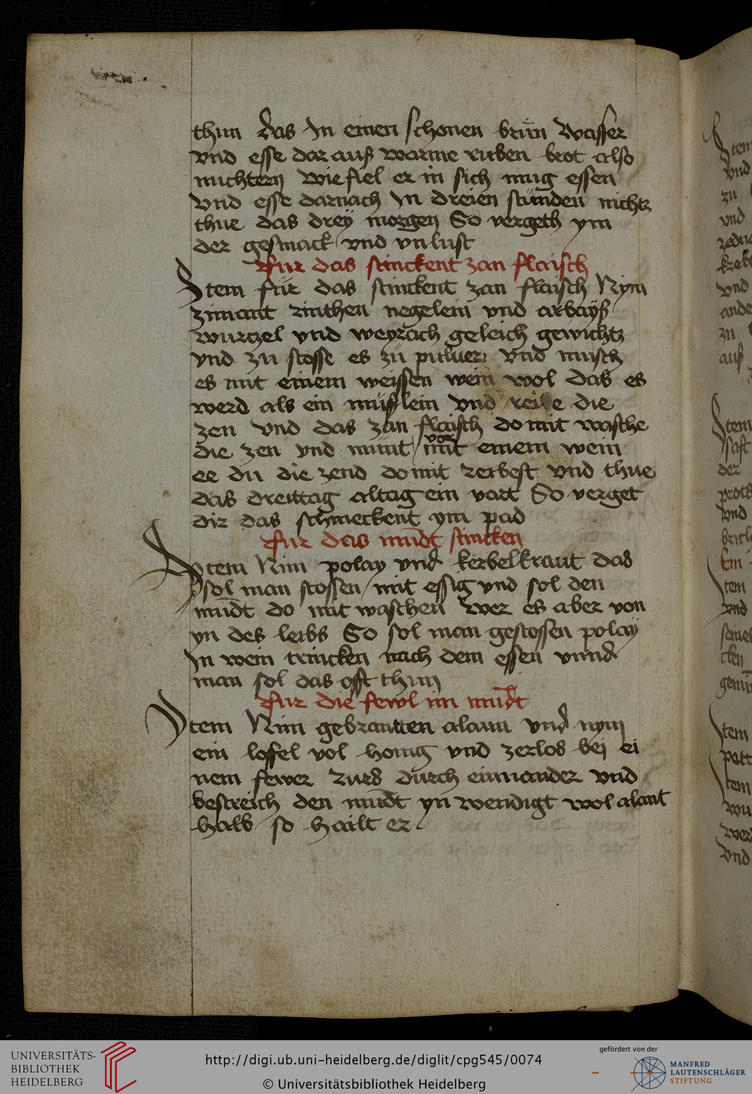 thun das In einen schonen brün Wasser
vnd esse dar auß warme ruben brot also
nuchtern Wie fiel er in sich mug essen
vnd esse darnach In dreien stunden nichtz
thue das drey morgen So vergeth ym
der gesmack vnd vnlust
fur das stinckent zan flaisch
Item für das stinckent zan flaisch Nym
zimant rinthen negelein vnd arbayß
wurtzel vnd weyrach geleich gewichtz
vnd zu stosse es zü puluer vnd misch
es mit einem weissen wein wol das es
werd als ein müslein vnd reibe die
zen vnd das zan flaisch do mit wasche
die zen vnd munt vor mit einem wein
ee du die zend do mit reibest vnd thue
das dreittag altag ein vart So verget
dir das schmeckent ym pad
fur das mudt stincken
Item Nim polay vnd kerbelkraut das
sol man stossen mit essig vnd sol den
mudt do mit waschen wer es aber von
yn des leibs So sol man gestossen polay
In wein trincken nach dem essen vnnd
man sol das offt thun
fur die fewl im mudt
Item Nim gebranten alaun vnd nym
ein loffel vol honig vnd zerlos bej ei
nem fewer rurs durch einnander vnd
bestreich den mudt yn wendigt wol alant
halb so hailt er
Item
vnd
zu
vnd
vnd
ande
zu
auß
Item
safft
der
vnd
Item
vnd
Item
Item
vnd
UNIVERSITÄTS-
BIBLIOTHEK
HEIDELBERG
http://digi.ub.uni-heidelberg.de/diglit/cpg545/0074
© Universitätsbibliothek Heidelberg
gefördert von der
MANFRED
LAUTENSCHLÄGER
STIFTUNG